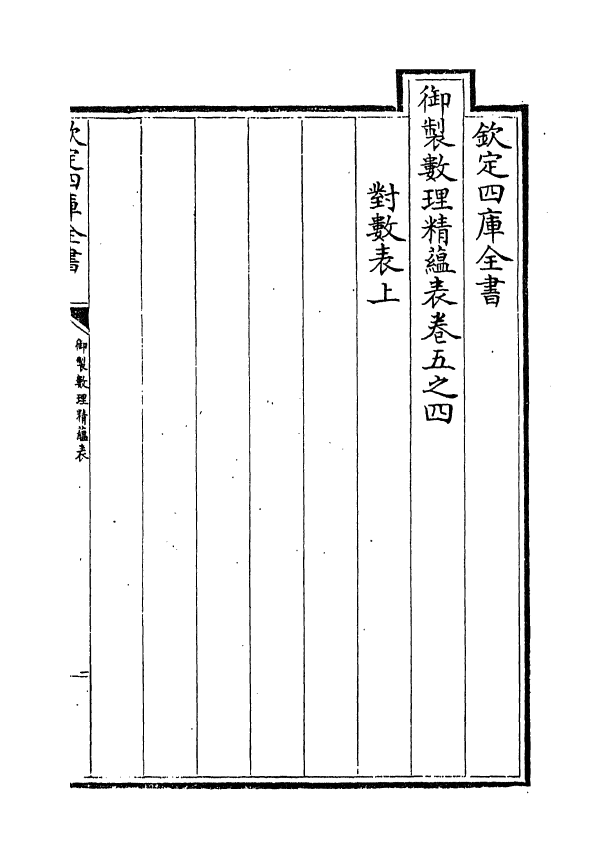 欽定四庫全書
御製數理精蘊表卷五之四
對數表上
欽定四庫全書
御製數理精蘊表
二